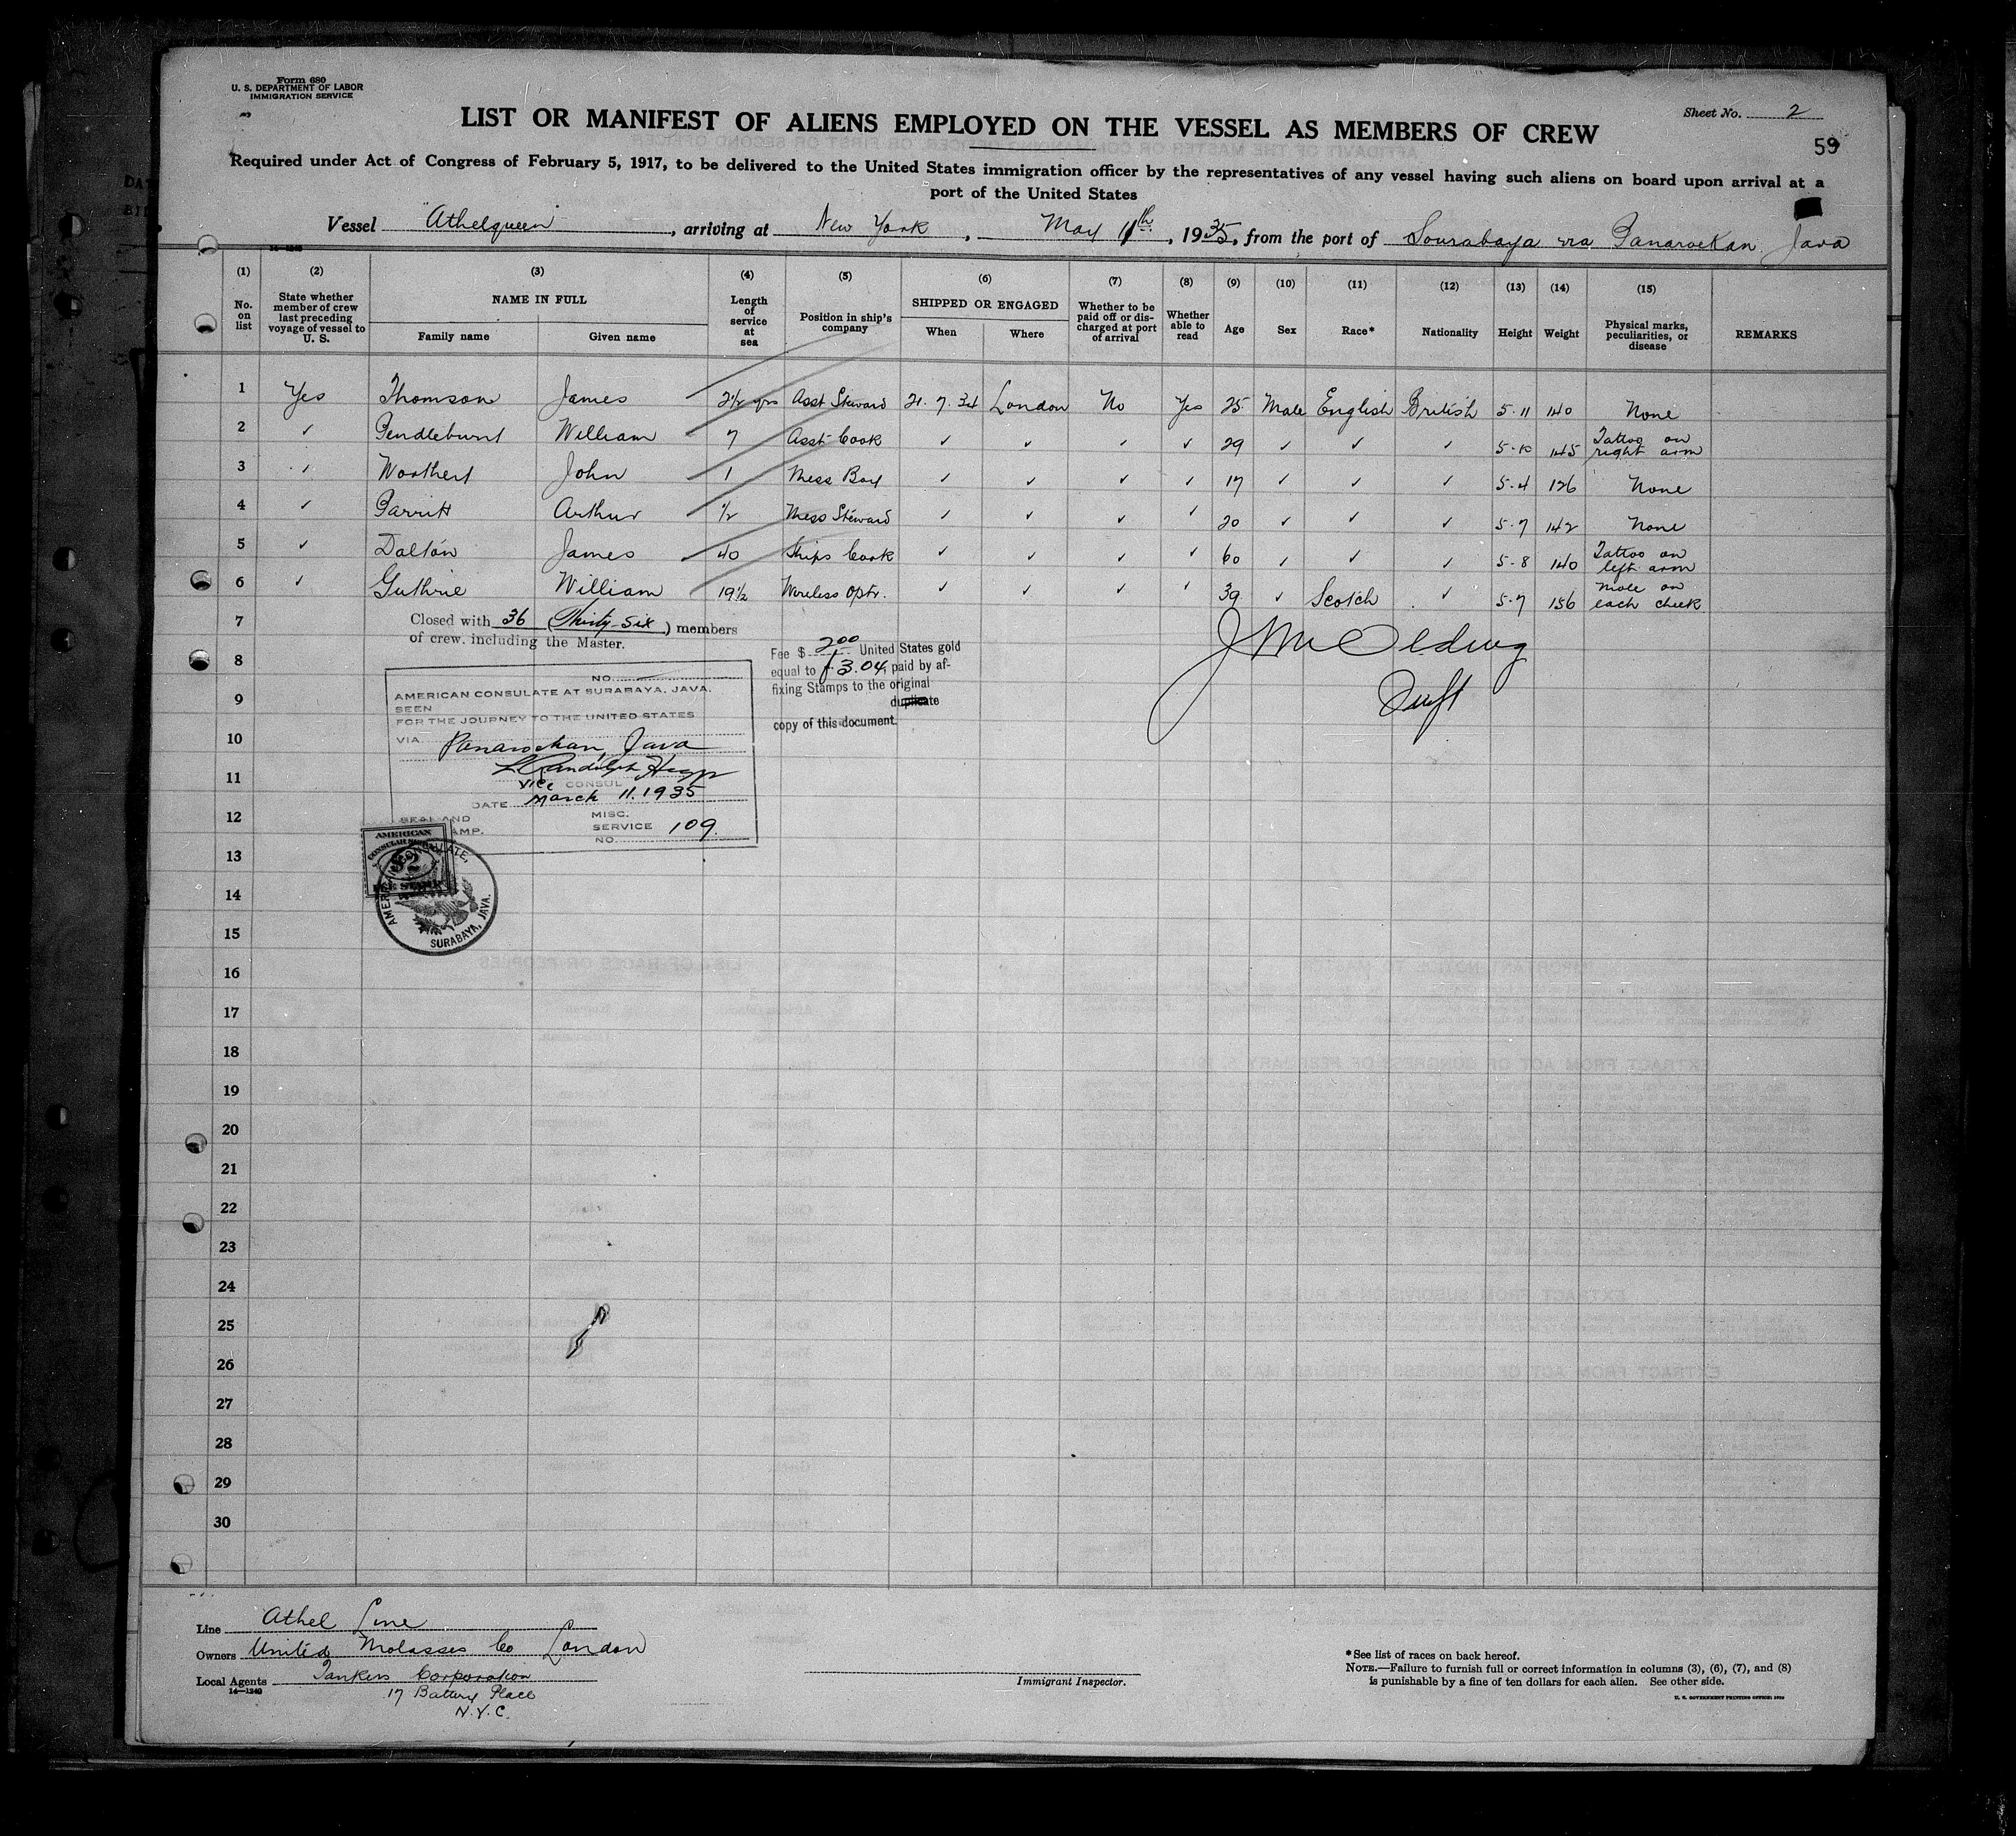 Form 680
U. S. DEPARTMENT OF LABOR
IMMIGRATION SERVICE
Sheet No. 2
59
LIST OR MANIFEST OF ALIENS EMPLOYED ON THE VESSEL AS MEMBERS OF CREW
Required under Act of Congress of February 5, 1917, to be delivered to the United States immigration officer by the representatives of any vessel having such aliens on board upon arrival at a
port of the United States
Vessel "Athelqueen", arriving at New York, May 11th, 1935, from the port of Sourabaya via Panaroekan Java
(1) (2) (3) (4) (5) (6) (7) (8) (9) (10) (11) (12) (13) (14) (15)
No. on list
State whether member of crew last preceding voyage of vessel to U. S.
NAME IN FULL
Family name
Given name
Length of service at sea
Position in ship's company
SHIPPED OR ENGAGED
When
Where
Whether to be paid off or discharged at port of arrival
Whether able to read
Age
Sex
Race*
Nationality
Height
Weight
Physical marks, peculiarities, or disease
REMARKS
1 Yes Thomson James 2½ yrs Asst Steward 21. 7. 34 London No Yes 25 Male English British 5-11 140 None
2 ✓ Pendleburt William 7 Asst Cook ✓ ✓ ✓ ✓ 29 ✓ ✓ ✓ 5-10 145 Tattoo on right arm
3 ✓ Worthert John 1 Mess Boy ✓ ✓ ✓ ✓ 17 ✓ ✓ ✓ 5-4 126 None
4 ✓ Parritt Arthur ½ Mess Steward ✓ ✓ ✓ ✓ 20 ✓ ✓ ✓ 5-7 142 None
5 ✓ Dalton James 40 Ships Cook ✓ ✓ ✓ ✓ 60 ✓ ✓ ✓ 5-8 140 Tattoo on left arm
6 ✓ Guthrie William 19½ Wireless Optr. ✓ ✓ ✓ ✓ 39 ✓ Scotch ✓ 5-7 156 Mole on each cheek
7
Closed with 36 (Thirty-six) members
of crew. including the Master.
8
Fee $ 2.00 United States gold
equal to f 3.04, paid by af-
fixing Stamps to the original
duplicate
copy of this document.
NO.
AMERICAN CONSULATE AT SURABAYA, JAVA.
SEEN
FOR THE JOURNEY TO THE UNITED STATES
VIA Panaroekan, Java
Vice CONSUL
DATE March 11. 1935
SEAL AND
STAMP.
MISC.
SERVICE 109.
NO.
AMERICAN
CONSULAR SERVICE
2
FEE STAMP
AMERICAN CONSULATE,
SURABAYA, JAVA.
9
10
11
12
13
14
15
16
17
18
19
20
21
22
23
24
25
26
27
28
29
30
Line Athel Line
Owners United Molasses Co London
Local Agents Tankers Corporation
14—1240
17 Battery Place
N.Y.C.
Immigrant Inspector.
*See list of races on back hereof.
NOTE.—Failure to furnish full or correct information in columns (3), (6), (7), and (8)
is punishable by a fine of ten dollars for each alien. See other side.